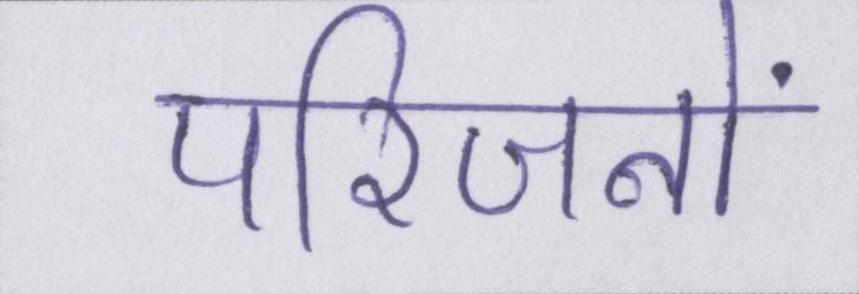 परिजनों